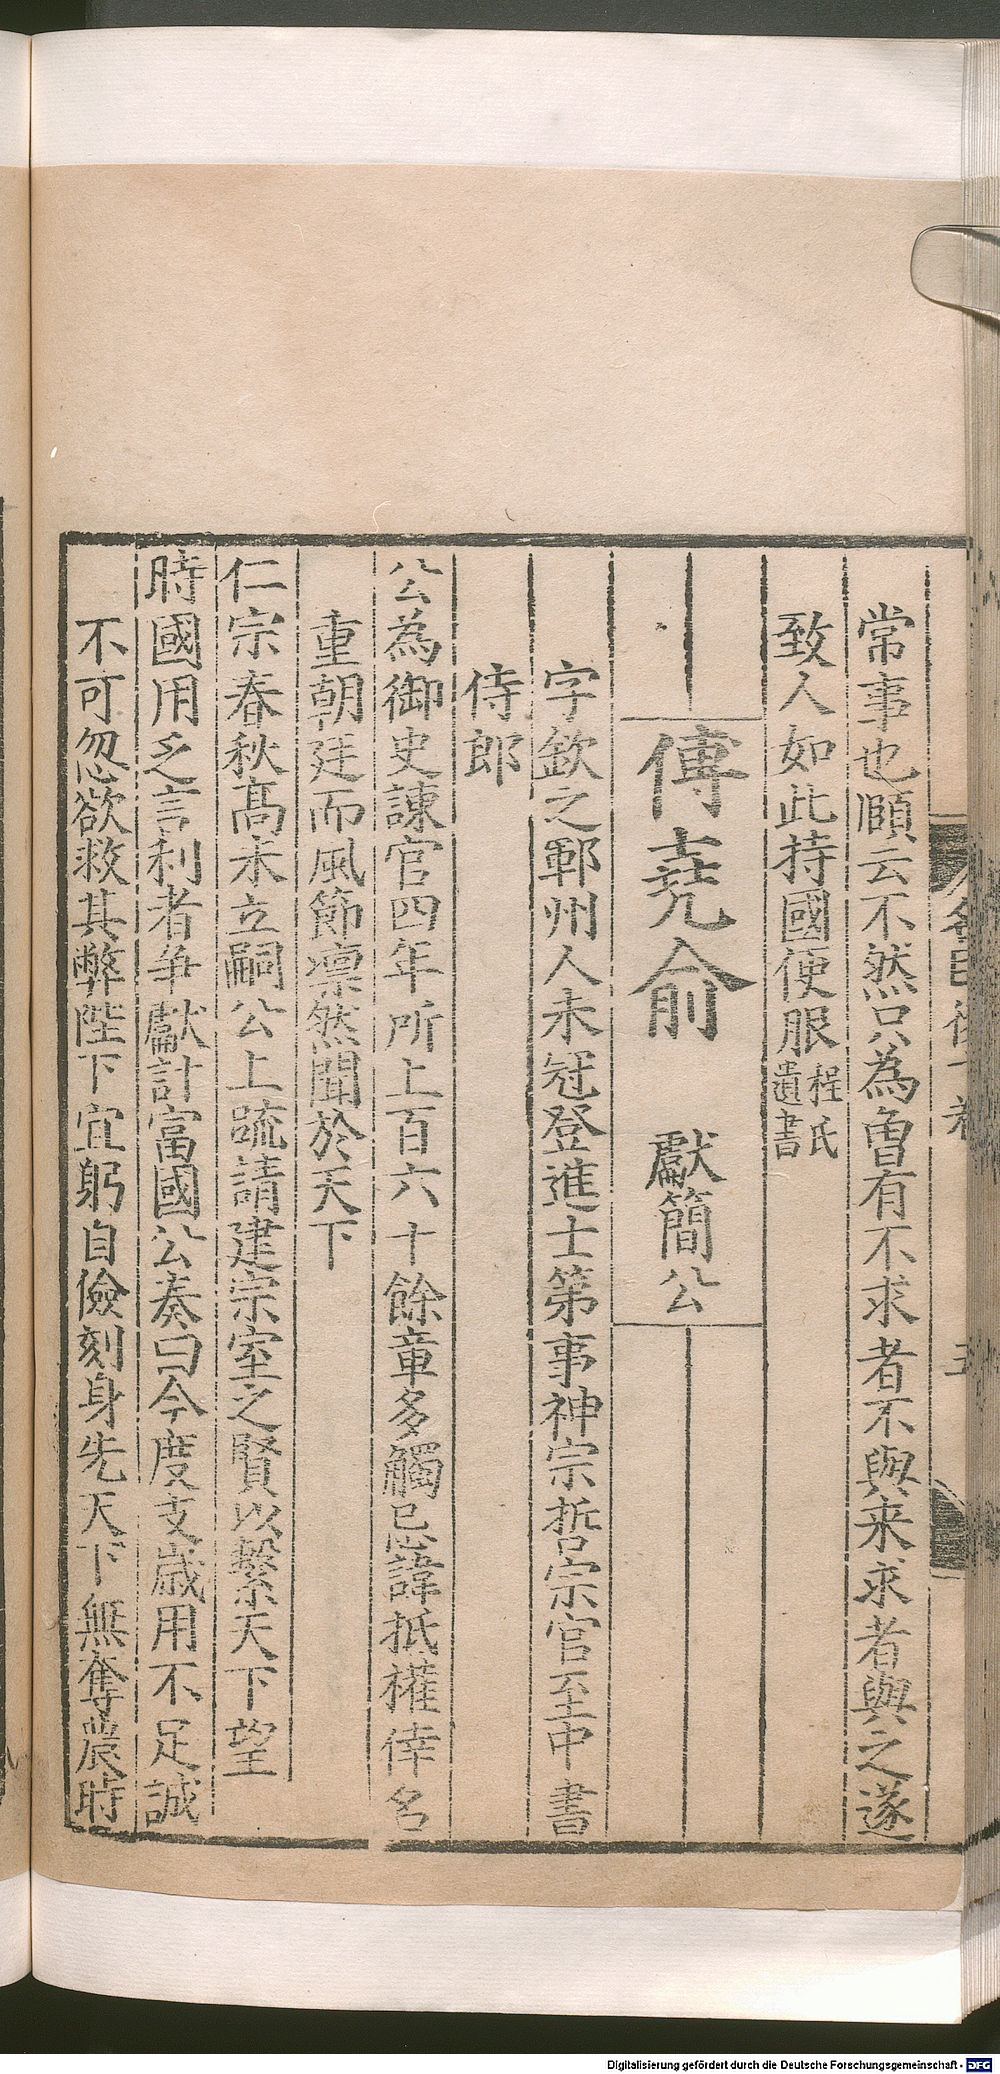 常事也頤云不然只為曾有不求者不與来求者與之遂
致人如此持國便服程氏遺書
傅尭俞 獻簡公
字欽之鄆州人未冠登進士第事神宗哲宗官至中書
侍郎
公為御史諌官四年所上百六十餘章多觸忌諱抵權倖名
重朝廷而風節凛然聞於天下
仁宗春秋髙未立嗣公上䟽請建宗室之賢以繫天下望
時國用乏言利者争獻計富國公奏曰今度支歳用不足誠
不可忽欲救其弊陛下宜躬自儉刻身先天下無奪農時
Digitalisierung gefördert durch die Deutsche Forschungsgemeinschaft - DFG